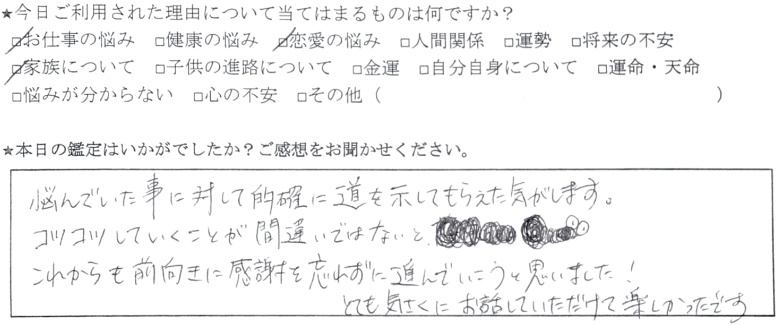 ★今日ご利用された理由について当てはまるものは何ですか？
□お仕事の悩み □健康の悩み □恋愛の悩み □人間関係 □運勢 □将来の不安
□家族について □子供の進路について □金運 □自分自身について □運命・天命
□悩みが分からない □心の不安 □その他（ ）
★本日の鑑定はいかがでしたか？ご感想をお聞かせください。
悩んでいた事に対して的確に道を示してもらえた気がします。
コツコツしていくことが間違いではないと、
これからも前向きに感謝を忘れずに進んでいこうと思いました！
とても気さくにお話していただけて楽しかったです